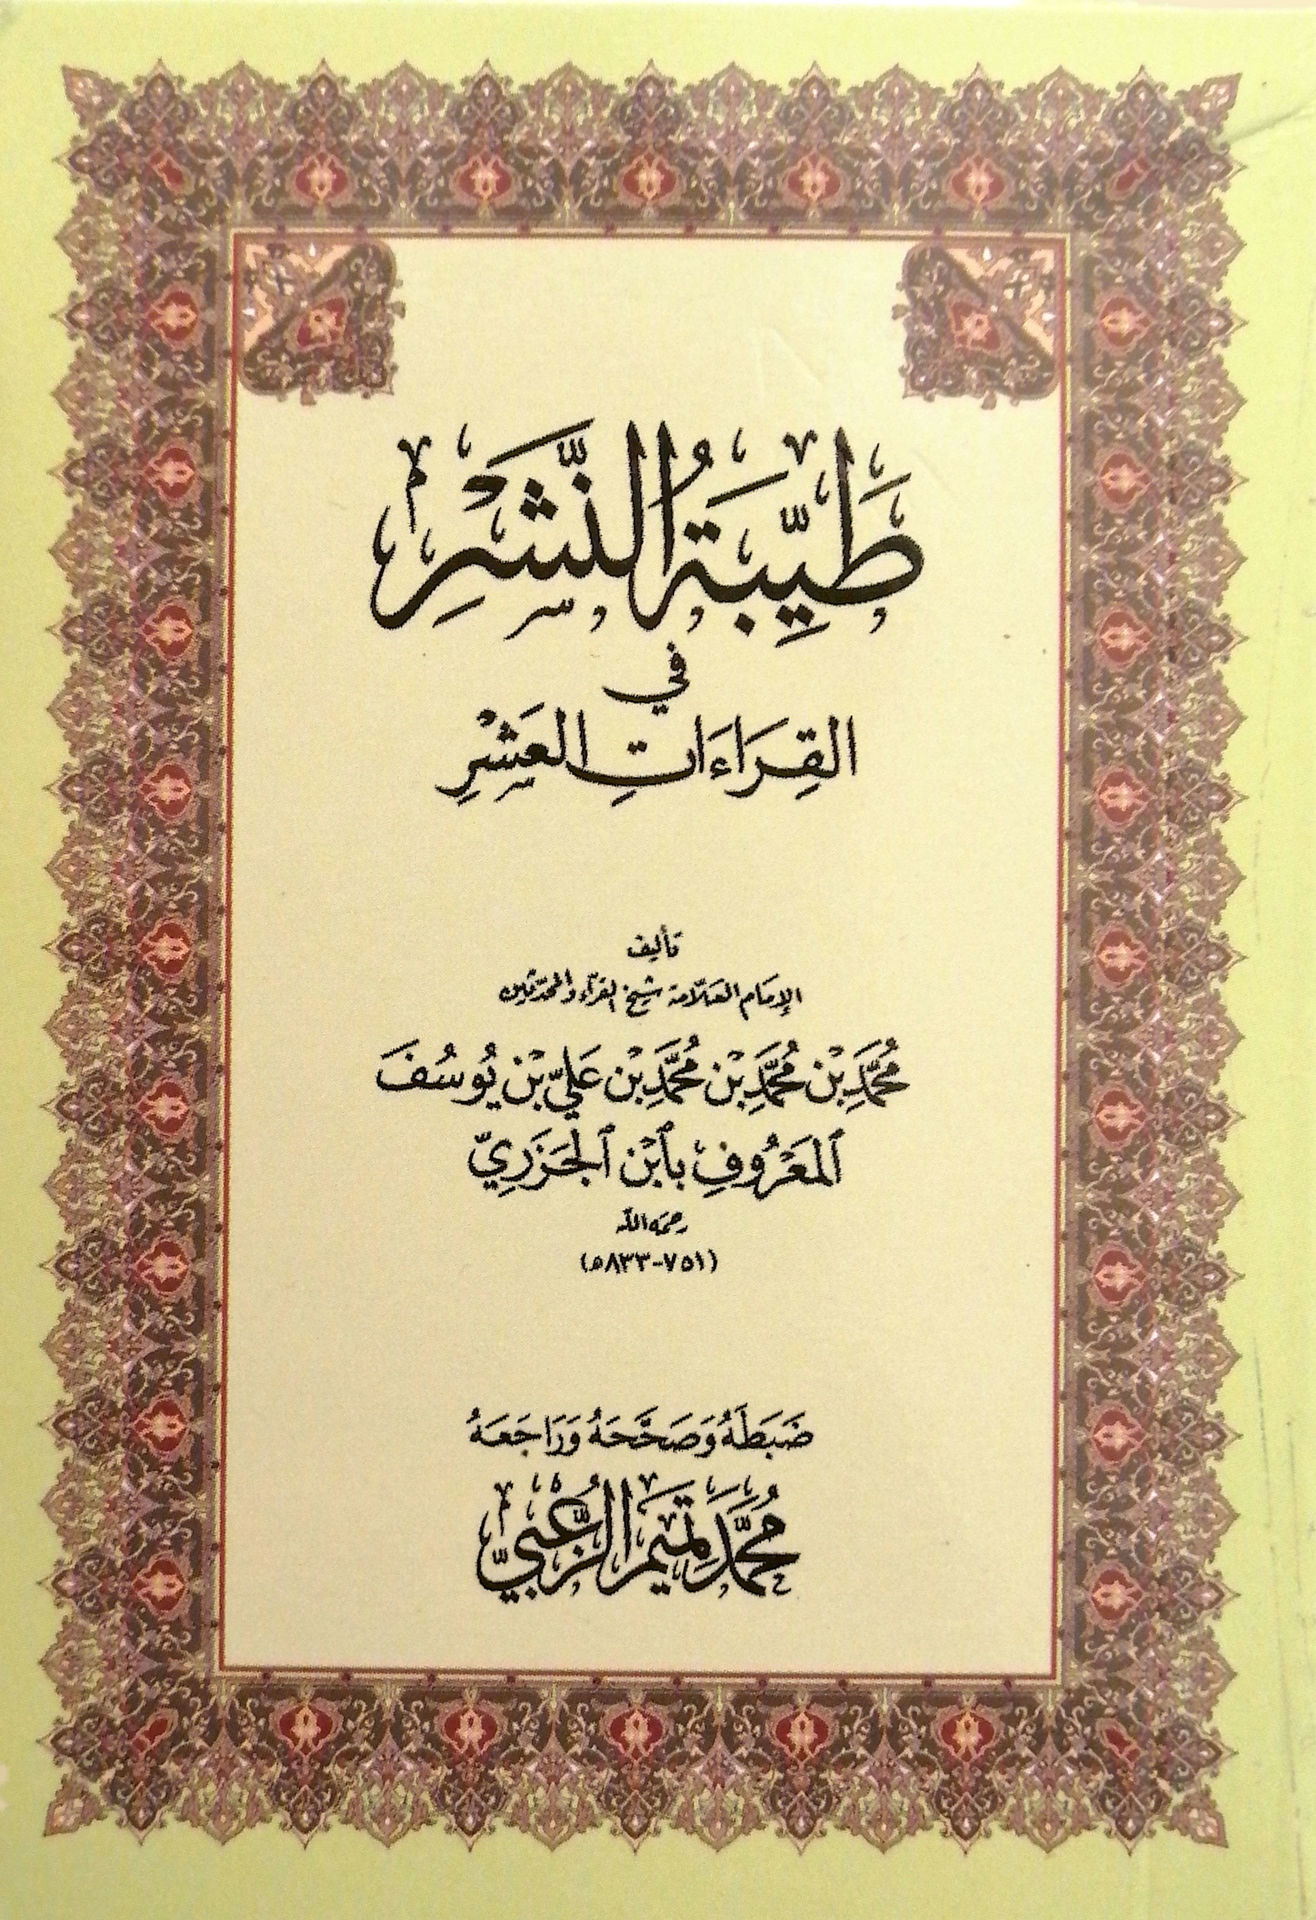 طَيِّبَةُ النَّشْرِ
في
القِرَاءَاتِ العَشْرِ
تأليف
الإمام العلّامة شيخ القرّاء والمحدّثين
مُحَمَّدِ بْنِ مُحَمَّدِ بْنِ مُحَمَّدِ بْنِ عَلِيّ بْنِ يُوسُفَ
ٱلمَعْرُوفِ بِٱبْنِ ٱلجَزَرِيّ
رحمه الله
(٧٥١-٨٣٣ه)
ضَبَطَهُ وَصَحَّحَهُ وَرَاجَعَهُ
مُحَمَّد تَمِيم الزُّعْبِيّ